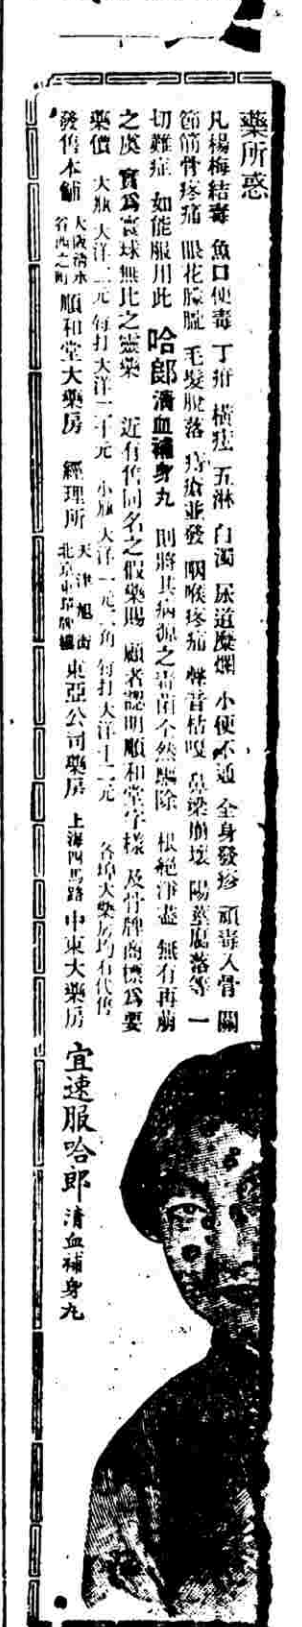 藥所惑
凡楊梅結毒 魚口便毒 丁疳 橫痃 五淋 白濁 尿道糜爛 小便不通 全身發疹 頑毒入骨 關
節筋骨疼痛 眼花朦朧 毛髮脫落 痔瘡並發 咽喉疼痛 聲音枯嗄 鼻梁崩壞 陽莖腐落等 一
切難症 如能服用此 哈郎清血補身丸 則將其病源之毒菌全然驅除 根絕淨盡 無有再萌
之虞 實爲寰球無比之靈藥 近有售同名之假藥 賜顧者認明順和堂字樣 及竹牌商標爲要
藥價 大瓶大洋二元 每打大洋二十元 小瓶大洋一元二角 每打大洋十二元 各埠大藥房均有代售
發售本舖 大阪清水谷西之町 順和堂大藥房 經理所 天津旭街 北京東單牌樓 東亞公司藥房 上海四馬路 中東大藥房
宜速服哈郎清血補身丸